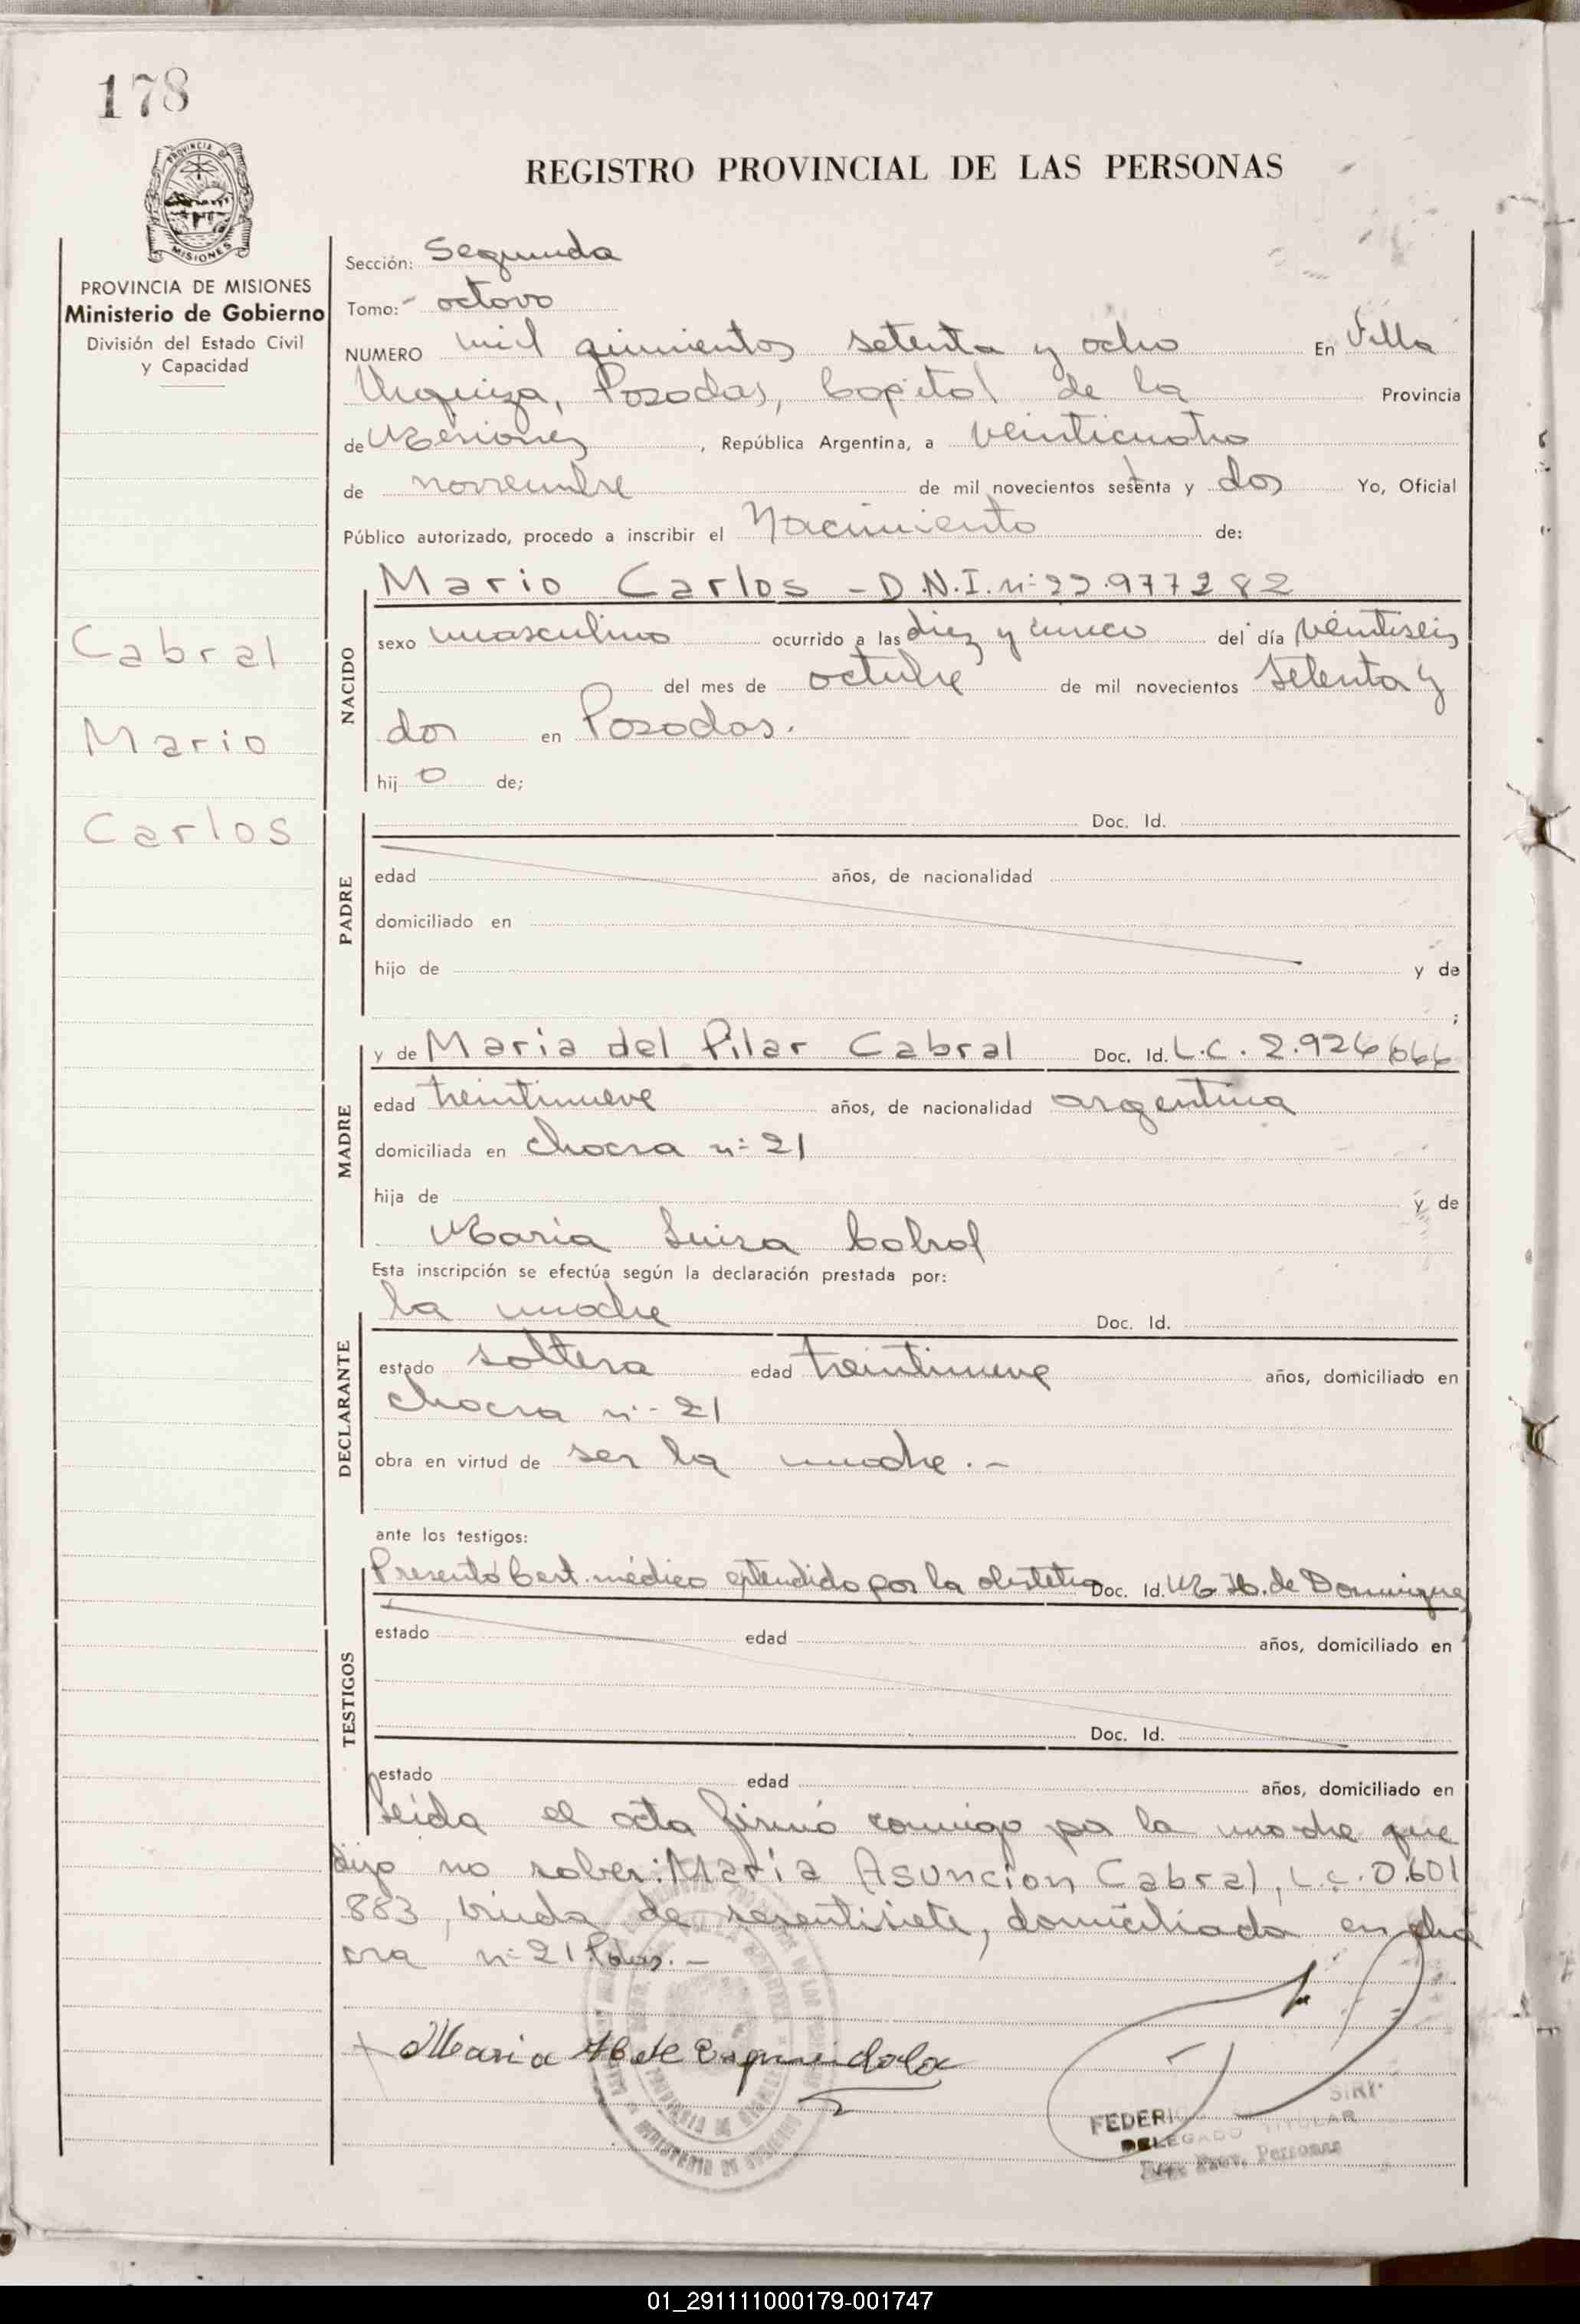 178
REGISTRO PROVINCIAL DE LAS PERSONAS
PROVINCIA
MISIONES
PROVINCIA DE MISIONES
Ministerio de Gobierno
División del Estado Civil
y Capacidad
Cabral
Mario
Carlos
Sección: Segunda
Tomo:- octavo
NUMERO mil quinientos setenta y ocho En Villa
Urquiza, Posadas, Capital de la Provincia
de Misiones, República Argentina, a veinticuatro
de noviembre de mil novecientos setenta y dos Yo, Oficial
Público autorizado, procedo a inscribir el Nacimiento de:
NACIDO
Mario Carlos - D.N.I. nº 22.977282
sexo masculino ocurrido a las diez y cinco del día veintiseis
del mes de octubre de mil novecientos setenta y
dos en Posadas.
hijo de;
PADRE
Doc. Id.
edad años, de nacionalidad
domiciliado en
hijo de y de
;
MADRE
y de Maria del Pilar Cabral Doc. Id. L.C. 2.926.666
edad treintinueve años, de nacionalidad argentina
domiciliada en chacra nº 21
hija de y de
Maria Luisa Cabral
Esta inscripción se efectúa según la declaración prestada por:
DECLARANTE
la madre Doc. Id.
estado soltera edad treintinueve años, domiciliado en
chacra nº 21
obra en virtud de ser la madre.-
ante los testigos:
TESTIGOS
Presentó Cert. médico extendido por la obstetra Doc. Id. M. H. de Dominguez
estado edad años, domiciliado en
Doc. Id.
estado edad años, domiciliado en
Leida el acta firmó conmigo por la madre que
dijo no saber: María Asuncion Cabral, L.C. 0.601
883, viuda de sesentisiete, domiciliada en cha
cra nº 21 Pdas.-
Maria
FEDERI
DELEGADO TITULAR
Prov. Personas
01_291111000179-001747